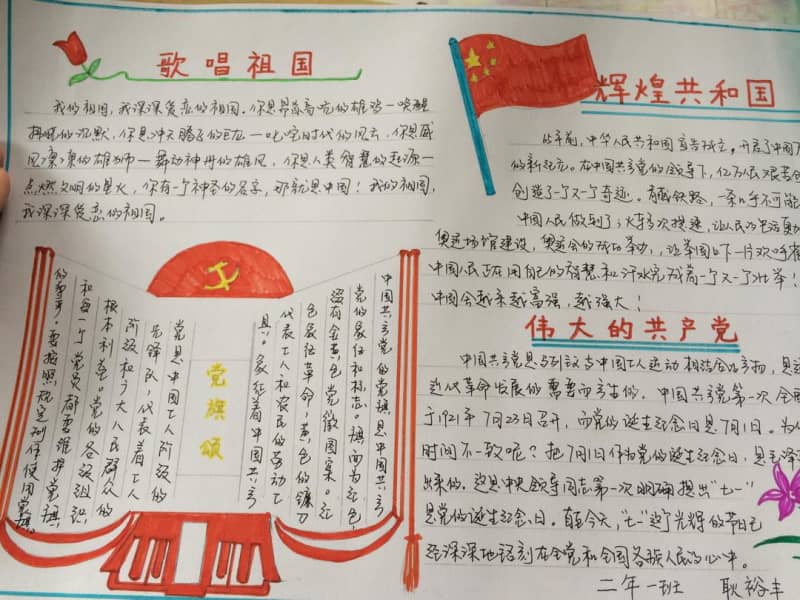 歌唱祖国
我的祖国,我深深爱恋的祖国。你是昂首高吭的雄鸡一唤醒
拂晓的沉默,你是冲天腾飞的巨龙一叱咤时代的风云,你是威
风凛凛的雄狮一舞动神州的雄风,你是人类智慧的起源一
点燃文明的星火,你有一个神圣的名字,那就是中国!我的祖国,
我深深爱恋的祖国。
辉煌共和国
年前,中华人民共和国宣告成立,开启了中国
的新纪元。在中国共产党的领导下,亿万人民艰苦
创造了一个又一个奇迹。青藏铁路,一条似乎不可能
中国人民做到了;火车多次提速,让人民的生活更加
奥运场馆建设,奥运会的成功举办,让举国上下一片欢呼雀
中国人民正在用自己的智慧和汗水完成着一个又一个壮举!
中国会越来越富强,越强大!
伟大的共产党
中国共产党是马列主义与中国工人运动相结合的产物,是
近代革命发展的需要而产生的。中国共产党第一次全
于1921年7月23日召开,而党的诞生纪念日是7月1日。为什
时间不一致呢?把7月1日作为党的诞生纪念日,是毛泽
出来的。这是中央领导同志第一次明确提出"七一"
是党的诞生纪念日。直至今天,"七一"这个光辉的节日已
经深深地铭刻在全党和全国各族人民的心中。
党旗颂
中国共产党的党旗是中国共产
党的象征和标志。旗面为红色,
缀有金黄色党徽图案。红
色象征革命;黄色的镰刀
代表工人和农民的劳动工
具。象征着中国共产
党是中国工人阶级的
先锋队,代表着工人
阶级和广大人民群众的
根本利益。党的各级组织
和每一个党员都要维护党旗
的尊严。要按照规定制作使用党旗。
二年一班 耿裕丰